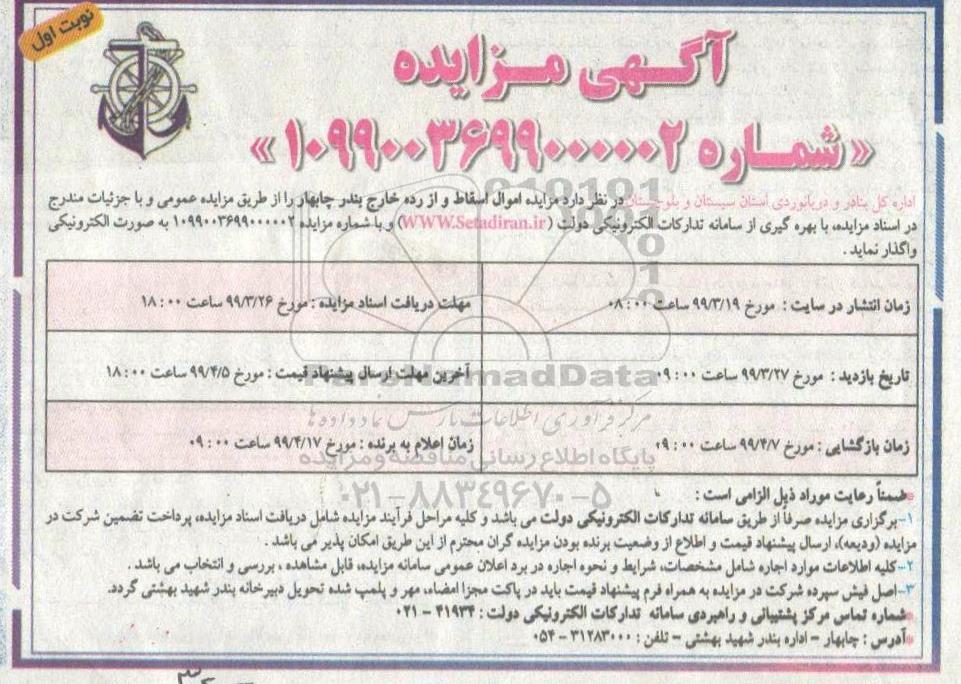 نوبت اول
آگهی مزایده
«شماره ۱۰۹۹۰۰۳۶۹۹۰۰۰۰۰۲»
اداره کل بنادر و دریانوردی استان سیستان و بلوچستان در نظر دارد مزایده اموال اسقاط و از رده خارج بندر چابهار را از طریق مزایده عمومی و با جزئیات مندرج
در اسناد مزایده، با بهره گیری از سامانه تدارکات الکترونیکی دولت (WWW.Setadiran.ir) و با شماره مزایده ۱۰۹۹۰۰۳۶۹۹۰۰۰۰۰۲ به صورت الکترونیکی
واگذار نماید.
زمان انتشار در سایت : مورخ ۹۹/۳/۱۹ ساعت ۰۸:۰۰
مهلت دریافت اسناد مزایده : مورخ ۹۹/۳/۲۶ ساعت ۱۸:۰۰
تاریخ بازدید : مورخ ۹۹/۳/۲۷ ساعت ۰۹:۰۰
آخرین مهلت ارسال پیشنهاد قیمت : مورخ ۹۹/۴/۵ ساعت ۱۸:۰۰
زمان بازگشایی : مورخ ۹۹/۴/۷ ساعت ۰۹:۰۰
زمان اعلام به برنده : مورخ ۹۹/۴/۱۷ ساعت ۰۹:۰۰
مرکز فرآوری اطلاعات پارس نماد داده ها
پایگاه اطلاع رسانی مناقصه و مزایده
۰۲۱-۸۸۳۴۹۶۷۰-۵
ضمناً رعایت موراد ذیل الزامی است :
۱-برگزاری مزایده صرفاً از طریق سامانه تدارکات الکترونیکی دولت می باشد و کلیه مراحل فرآیند مزایده شامل دریافت اسناد مزایده، پرداخت تضمین شرکت در
مزایده (ودیعه)، ارسال پیشنهاد قیمت و اطلاع از وضعیت برنده بودن مزایده گران محترم از این طریق امکان پذیر می باشد .
۲-کلیه اطلاعات موارد اجاره شامل مشخصات، شرایط و نحوه اجاره در برد اعلان عمومی سامانه مزایده، قابل مشاهده ، بررسی و انتخاب می باشد .
۳-اصل فیش سپرده شرکت در مزایده به همراه فرم پیشنهاد قیمت باید در پاکت مجزا امضاء، مهر و پلمپ شده تحویل دبیرخانه بندر شهید بهشتی گردد.
شماره تماس مرکز پشتیبانی و راهبردی سامانه تدارکات الکترونیکی دولت : ۴۱۹۳۴ - ۰۲۱
آدرس : چابهار - اداره بندر شهید بهشتی - تلفن : ۳۱۲۸۳۰۰۰ - ۰۵۴